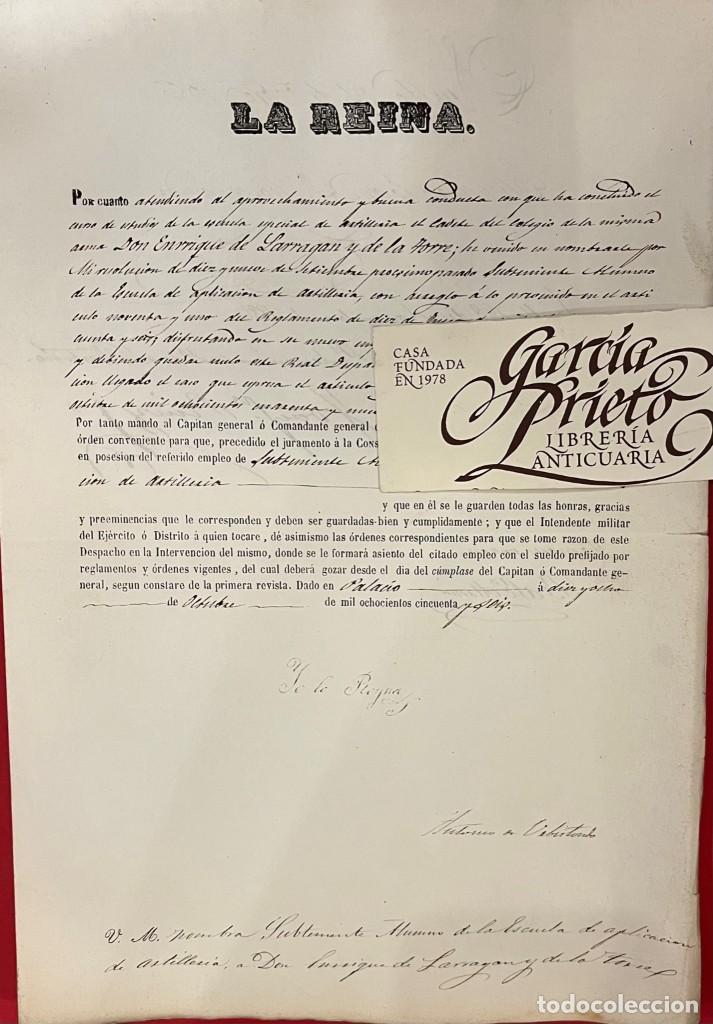 LA REINA.
Por cuanto atendiendo al aprovechamiento y buena conducta con que ha concluido el
curso de estudios de la escuela especial de artilleria el Cadete del Colegio de la misma
arma Don Enrrique de Larragan y de la Torre; he venido en nombrarle por
Mi resolucion de diez y nueve de Setiembre procsimo pasado Subteniente Alumno
de la Escuela de aplicacion de Artilleria, con arreglo á lo prevenido en el arti
culo noventa y uno del Reglamento de diez de Enero
cuenta y seis; disfrutando en su nuevo
y debiendo quedar nulo este Real Despa
cion llegado el caso que espresa el articulo
octubre de mil ochocientos cuarenta y nue
Por tanto mando al Capitan general ó Comandante general
órden conveniente para que, precedido el juramento á la Cons
en posesion del referido empleo de Subteniente
cion de Artilleria
y que en él se le guarden todas las honras, gracias
y preeminencias que le corresponden y deben ser guardadas bien y cumplidamente; y que el Intendente militar
del Ejército ó Distrito á quien tocare, dé asimismo las órdenes correspondientes para que se tome razon de este
Despacho en la Intervencion del mismo, donde se le formará asiento del citado empleo con el sueldo prefijado por
reglamentos y órdenes vigentes, del cual deberá gozar desde el dia del cúmplase del Capitan ó Comandante ge-
neral, segun constare de la primera revista. Dado en Palacio á diez y ocho
de Octubre de mil ochocientos cincuenta y seis.
Yo la Reyna
Antonio de
V. M. nombra Subteniente Alumno de la Escuela de aplicacion
de Artilleria, a Don Enrrique de Larragan y de la Torre
CASA
FUNDADA
EN 1978
García
Prieto
LIBRERÍA
ANTICUARIA
todocoleccion